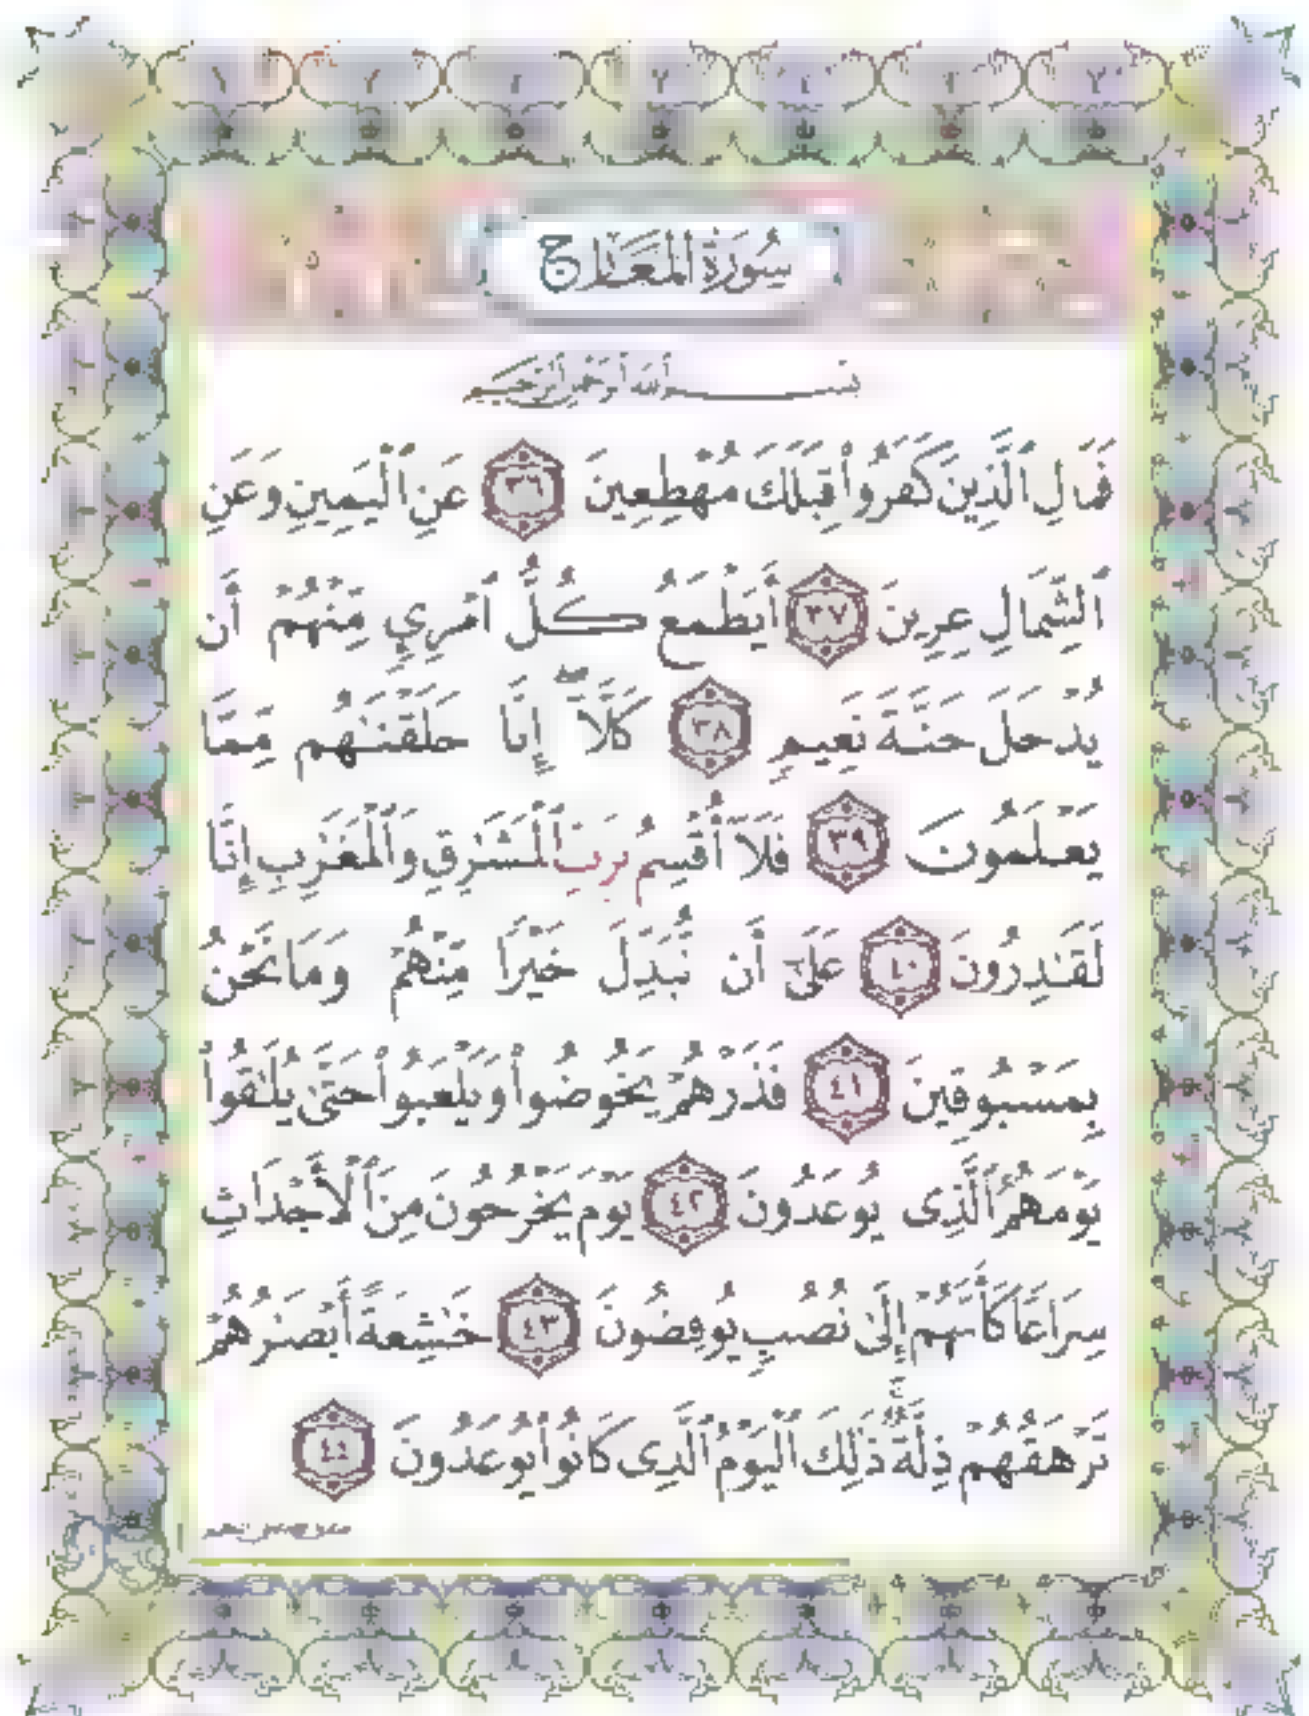 سُورَةُ المَعَارِج
بِسْمِ ٱللَّهِ ٱلرَّحْمَٰنِ ٱلرَّحِيمِ
فَمَالِ ٱلَّذِينَ كَفَرُوا۟ قِبَلَكَ مُهْطِعِينَ ٣٦ عَنِ ٱلْيَمِينِ وَعَنِ
ٱلشِّمَالِ عِزِينَ ٣٧ أَيَطْمَعُ كُلُّ ٱمْرِئٍ مِّنْهُمْ أَن
يُدْخَلَ جَنَّةَ نَعِيمٍ ٣٨ كَلَّآ ۖ إِنَّا خَلَقْنَٰهُم مِّمَّا
يَعْلَمُونَ ٣٩ فَلَآ أُقْسِمُ بِرَبِّ ٱلْمَشَٰرِقِ وَٱلْمَغَٰرِبِ إِنَّا
لَقَٰدِرُونَ ٤٠ عَلَىٰٓ أَن نُّبَدِّلَ خَيْرًا مِّنْهُمْ وَمَا نَحْنُ
بِمَسْبُوقِينَ ٤١ فَذَرْهُمْ يَخُوضُوا۟ وَيَلْعَبُوا۟ حَتَّىٰ يُلَٰقُوا۟
يَوْمَهُمُ ٱلَّذِى يُوعَدُونَ ٤٢ يَوْمَ يَخْرُجُونَ مِنَ ٱلْأَجْدَاثِ
سِرَاعًا كَأَنَّهُمْ إِلَىٰ نُصُبٍ يُوفِضُونَ ٤٣ خَٰشِعَةً أَبْصَٰرُهُمْ
تَرْهَقُهُمْ ذِلَّةٌ ۚ ذَٰلِكَ ٱلْيَوْمُ ٱلَّذِى كَانُوا۟ يُوعَدُونَ ٤٤